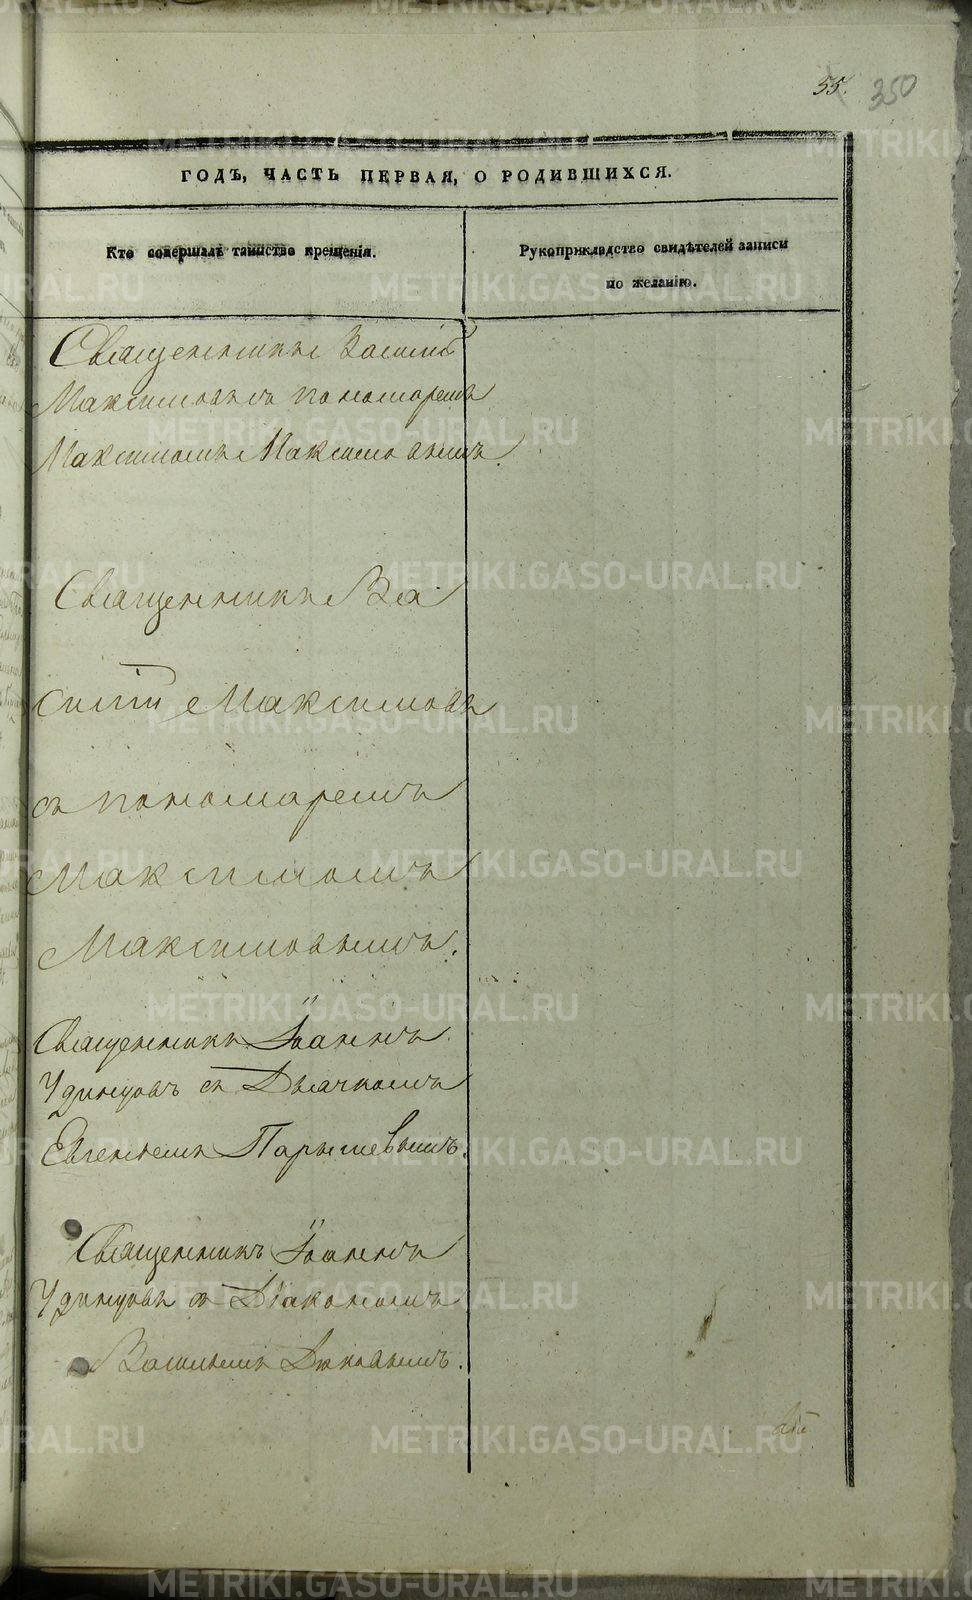 55. 350
ГОДЪ, ЧАСТЬ ПЕРВАЯ, О РОДИВШИХСЯ.
Кто совершалъ таинство крещенія.
Рукоприкладство свидѣтелей записи
по желанію.
Священникъ Василій
Максимовъ съ пономаремъ
Максимомъ Максимовымъ.
Священникъ Ва
силій Максимовъ
съ пономаремъ
Максимомъ
Максимовымъ.
Священникъ Іоаннъ
Удинцовъ съ Дьячкомъ
Евгеніемъ Парышевымъ.
Священникъ Іоаннъ
Удинцовъ съ Діакономъ
Василіемъ
METRIKI.GASO-URAL.RU